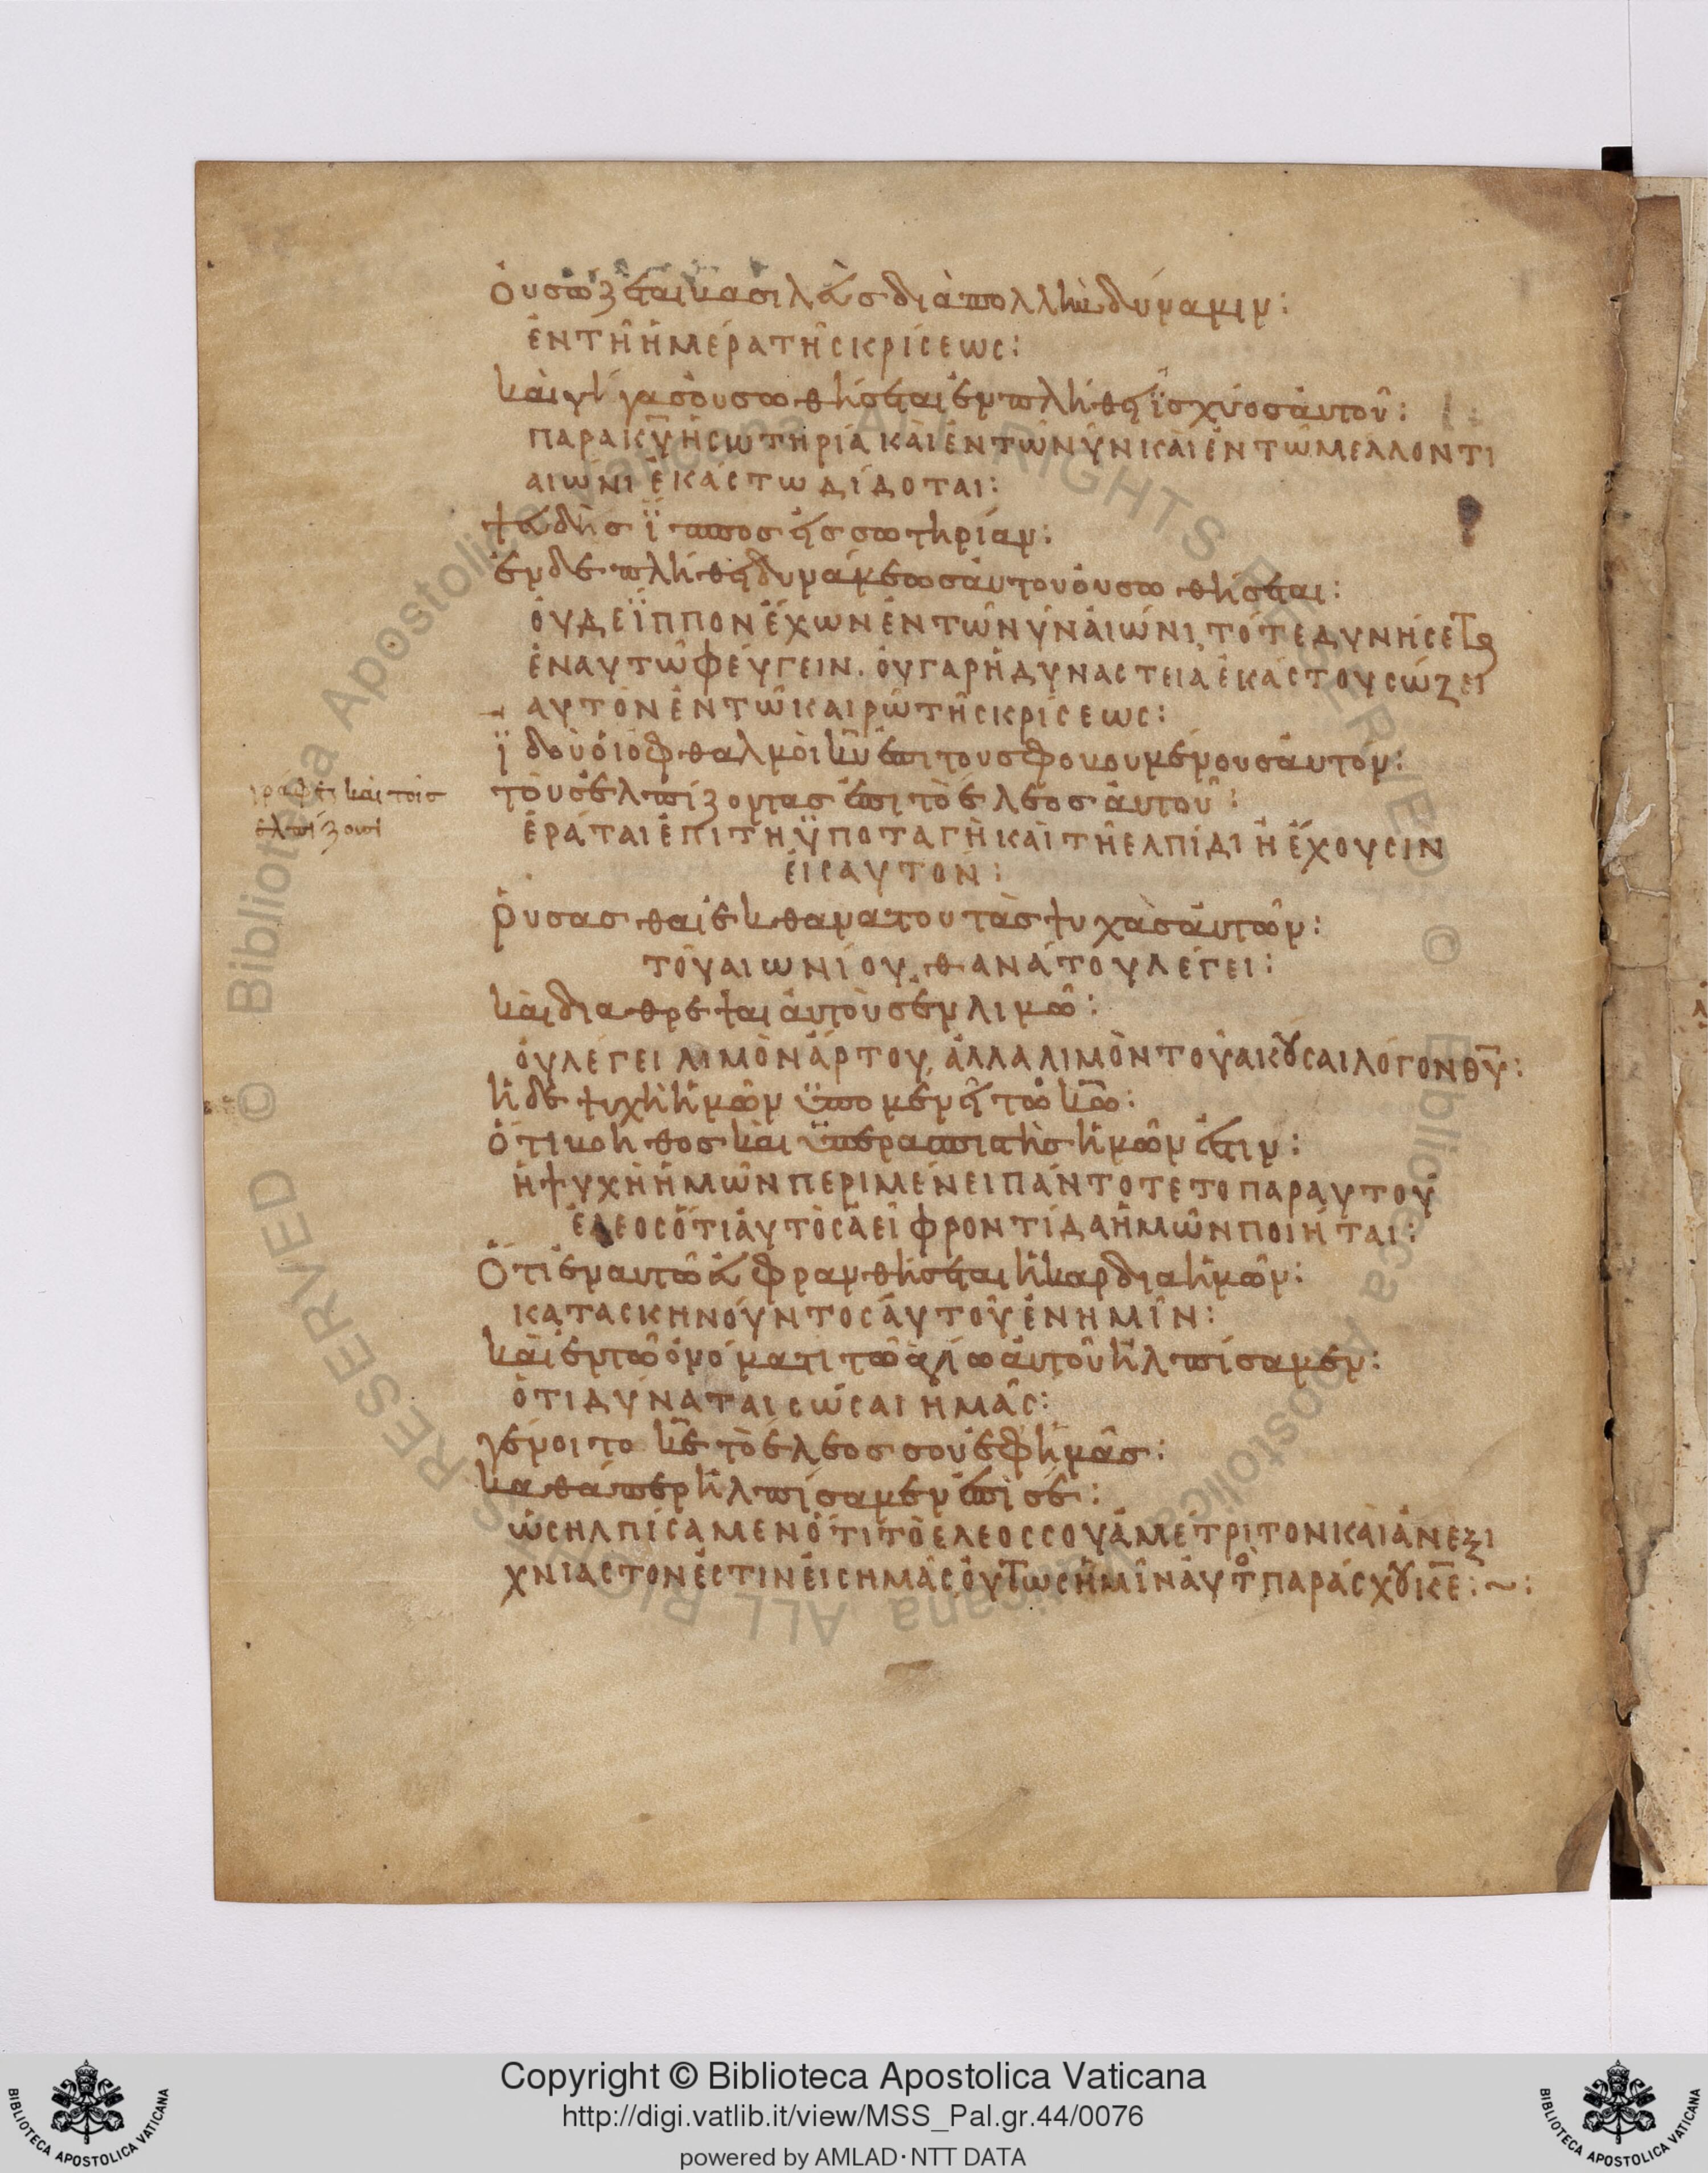 Ὀυ σώζεται βασιλεὺς διὰ πολλὴν δύναμιν:
ἐν τῆ ἡμέρα τῆς κρίσεως:
καὶ γίγας ὀυ σωθήσεται ἐν πλήθει ϊσχύος ἀυτοῦ:
παρα κ̅υ̅ ἡ σωτηρία καὶ ἐν τῶ νῦν καὶ ἐν τῶ μέλλοντι
αιῶνι ἑκάστω δίδοται:
ψευδὴς ΐππος εἰς σωτηρίαν:
ἐν δε πλήθει δυνάμεως ἀυτου ὀυ σωθήσεται:
ὀυδε ΐππον ἔχων ἐν τῶ νῦν ἀιῶνι, τότε δυνήσεται
ἐν αυτῶ φέυγειν. ὀυ γαρ ἡ δυναστεια ἑκάστου σώζει
αυτὸν ἐν τῶ καιρῶ τῆς κρίσεως:
ϊδοὺ ὁι ὀφθαλμοὶ κ̅υ̅ ἐπι τους φοβουμένους ἀυτον:
τοὺς ἐλπίζοντας ἐπι τὸ ἔλεος ἀυτοῦ:
γράφει καὶ τοῖς
ἐλπίζουσι
ἐρᾶται ἐπι τῆ ϋποταγῆ καὶ τῆ ελπίδι ἡ ἔχουσιν
εἰς αυτόν:
ῥυσασθαι ἐκ θανατου τὰς ψυχὰς ἀυτῶν:
τοῦ αιωνίου θανάτου λέγει:
καὶ διαθρεψαι ἀυτοὺς ἐν λιμῶ:
ὀυ λέγει λιμὸν ἄρτου, ἀλλα λιμὸν τοῦ ακοῦσαι λόγον θ̅υ̅:
ἡ δε ψυχὴ ἡμῶν ϋπομένει τῶ κ̅ω̅:
ὅτι βοηθος καὶ ϋπερασπιστὴς ἡμῶν ἐστιν:
ἡ ψυχὴ ἡμῶν περιμένει πάντοτε το παρ αυτοῦ
ἔλεος ὅτι ἀυτὸς ἀεὶ φροντίδα ἡμῶν ποιῆται:
Ὅτι ἐν αυτῶ ἐυφρανθήσεται ἡ καρδια ἡμῶν:
κατασκηνοῦντος ἀυτοῦ ἐν ημῖν:
καὶ ἐν τῶ ὀνόματι τῶ ἁγίω ἀυτοῦ ἠλπίσαμεν:
ὅτι δύναται σῶσαι ἡμᾶς:
γένοιτο κ̅ε̅ τὸ ἔλεος σου ἐφ ἡμᾶς:
καθάπερ ἠλπίσαμεν ἐπὶ σέ:
ὡς ηλπίσαμεν ὅτι τὸ ελεος σου ἄμετριτον και ἀνεξι
χνιαστον ἐστιν ἐις ημᾶς ὁυτως ἡμῖν ἀυτὸ παράσχου κ̅ε̅:~:
Copyright © Biblioteca Apostolica Vaticana
http://digi.vatlib.it/view/MSS_Pal.gr.44/0076
powered by AMLAD·NTT DATA
BIBLIOTECA APOSTOLICA VATICANA
BIBLIOTECA APOSTOLICA VATICANA